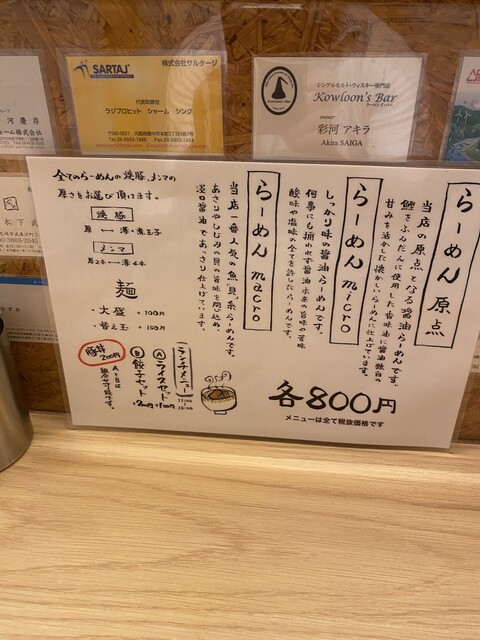 SARTAJ
株式会社サルタージ
代表取締役
ラジプロヒット シャーム シング
シングルモルト・ウィスキー専門店
Kowloon's Bar
owner
彩河 アキラ
Akira SAIGA
らーめん 原点
当店の原点となる醤油らーめんです。
鰹をふんだんに使用した香味油に醤油独自の
甘みを活かした懐かしいらーめんに仕上ています。
らーめん micro
しっかり味の醤油らーめんです。
何事にも捕われず醤油本来の旨味の苦味
酸味や塩味の全てを許したらーめんです。
らーめん macro
当店一番人気の魚貝系らーめんです。
あさりやしじみの貝の旨味を閉じ込め、
淡口醤油であっさり仕上げています。
全てのらーめんの焼豚、メンマの
厚さをお選び頂けます。
焼豚
厚 ⟷ 薄・煮玉子
メンマ
麺
・大盛 +100円
・替え玉 +150円
ランチメニュー
11:00
15:00
Ⓐライスセット
+100円
Ⓑ餃子セット
+200円
豚丼
200円
A・Bは
組合せ可能です。
各800円
メニューは全て税抜価格です